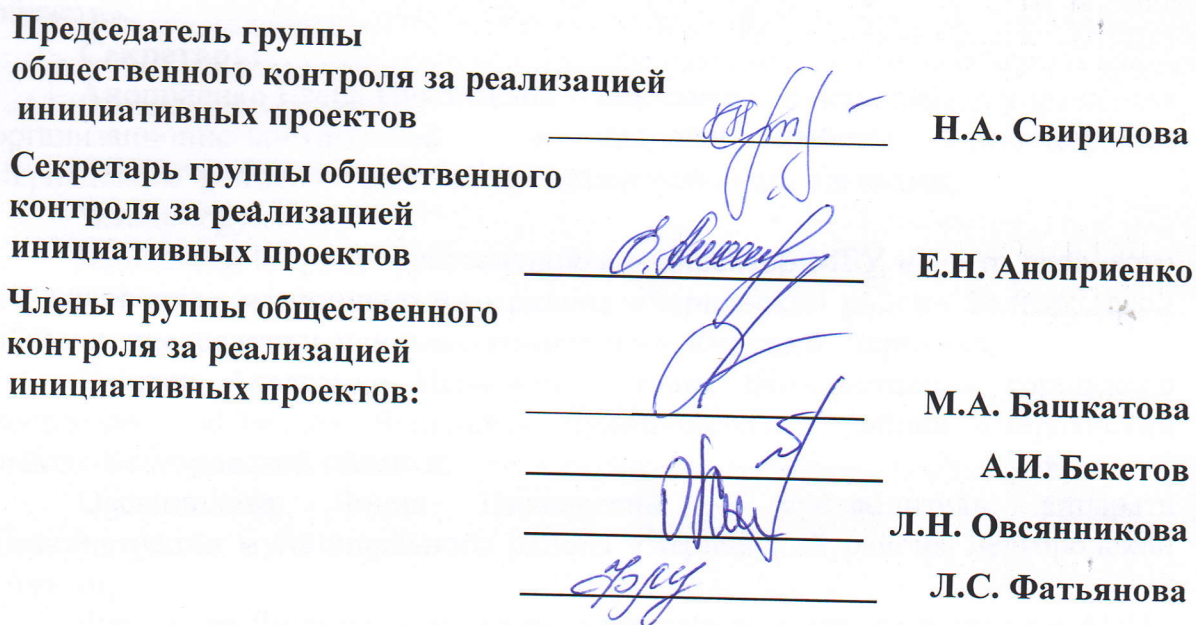 Председатель группы
общественного контроля за реализацией
инициативных проектов Н.А. Свиридова
Секретарь группы общественного
контроля за реализацией
инициативных проектов Е.Н. Аноприенко
Члены группы общественного
контроля за реализацией
инициативных проектов:
М.А. Башкатова
А.И. Бекетов
Л.Н. Овсянникова
Л.С. Фатьянова